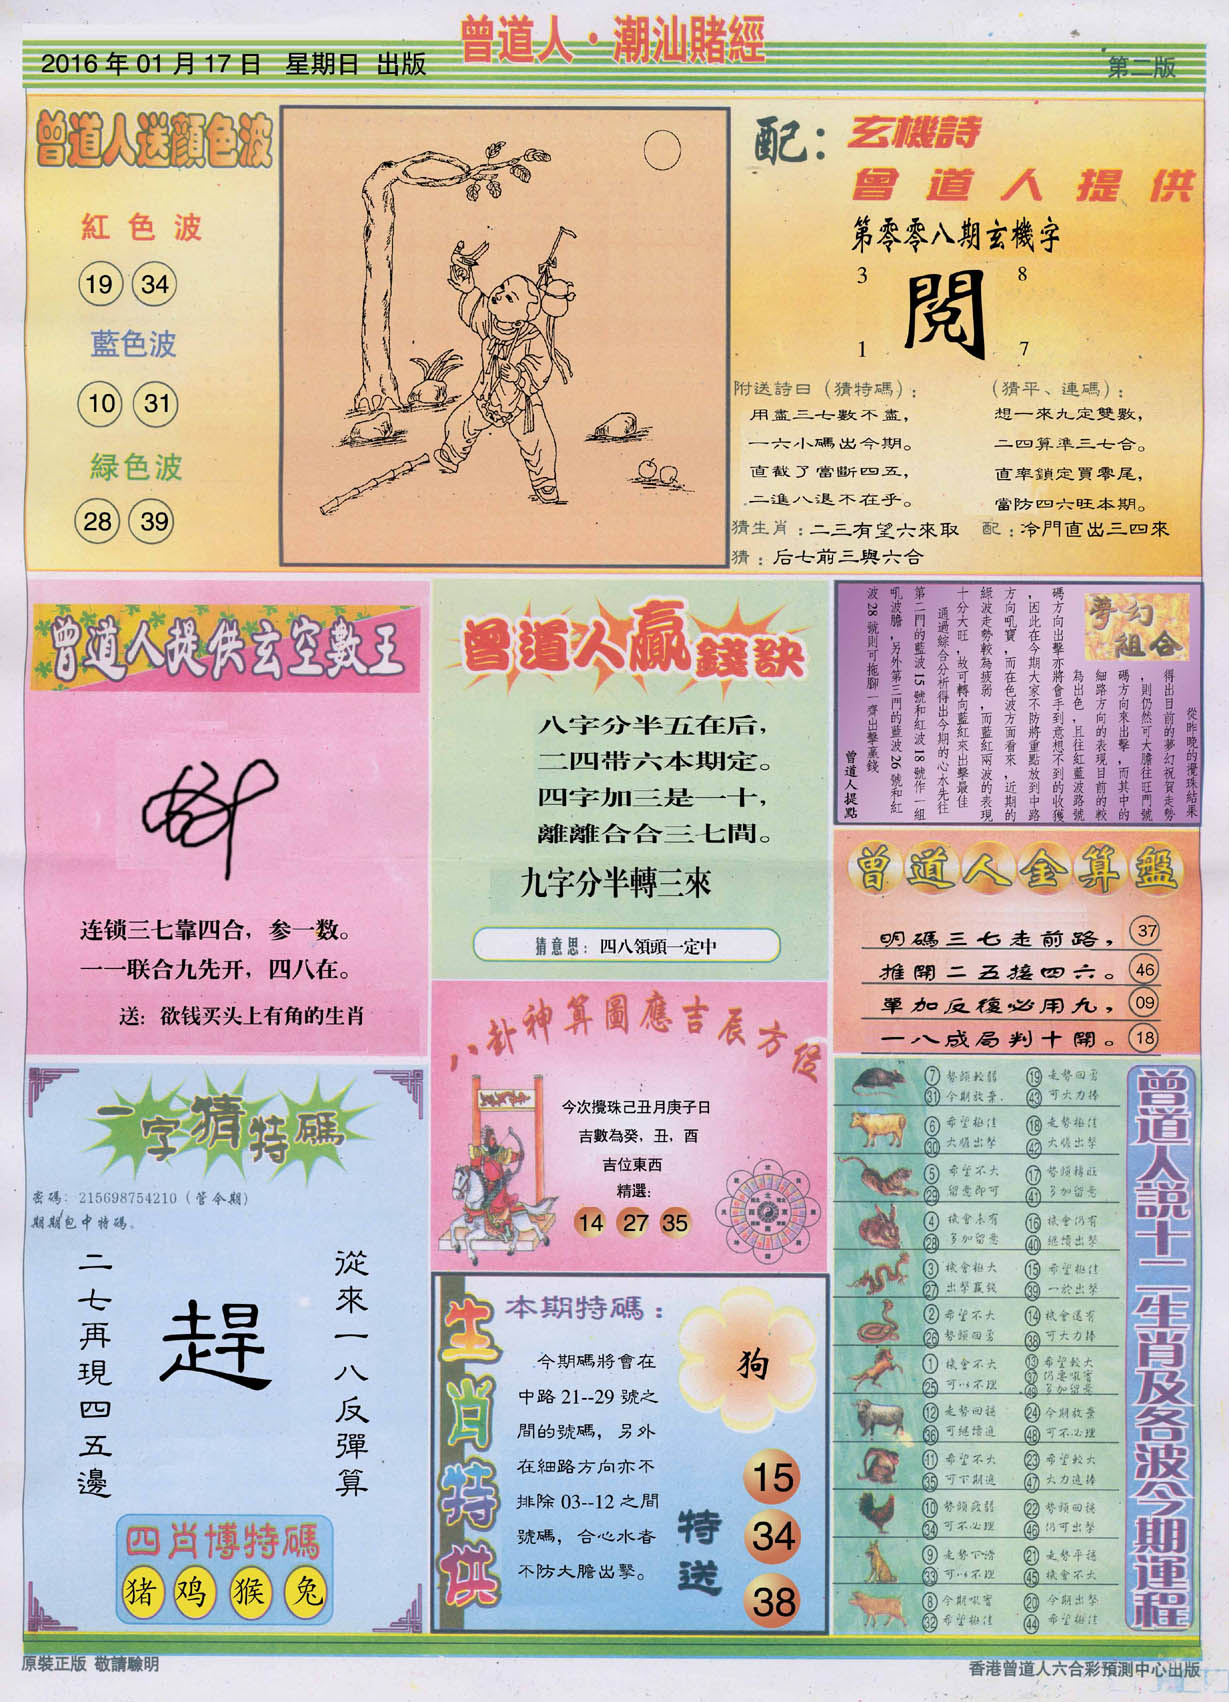 2016年01月17日 星期日 出版
曾道人·潮汕賭經
第二版
曾道人送顏色波
紅色波
19 34
藍色波
10 31
緑色波
28 39
配：玄機詩
曾道人提供
第零零八期玄機字
3 8
閱
1 7
附送詩曰（猜特碼）：
用盡三七數不盡，
一六小碼出今期。
直截了當斷四五，
二進八退不在乎。
（猜平、連碼）：
想一來九定雙數，
二四算準三七合。
直率鎖定買零尾，
當防四六旺本期。
猜生肖：二三有望六來取
配：冷門直出三四來
猜：后七前三與六合
曾道人提供玄空數王
连锁三七靠四合，参一数。
一一联合九先开，四八在。
送：欲钱买头上有角的生肖
曾道人贏錢訣
八字分半五在后，
二四带六本期定。
四字加三是一十，
離離合合三七間。
九字分半轉三來
猜意思：四八領頭一定中
夢幻組合
從昨晚的攪珠結果
得出目前的夢幻祝賀走勢
，則仍然可大膽往旺門號
碼方向來出擊，而其中的
細路方向的表現目前的較
為出色，且往紅藍波路號
碼方向出擊亦將會手到意想不到的收獲
，因此在今期大家不防將重點放到中路
方向吼寶，而在色波方面看來，近期的
綠波走勢較為疲弱，而藍紅兩波的表現
十分大旺，故可轉向藍紅來出擊最佳
通過綜合分析得出今期的心水先往
第二門的藍波15號和紅波18號作一組
吼波膽，另外第三門的藍波26號和紅
波28號則可拖腳一齊出擊贏錢
曾道人提點
曾道人金算盤
明碼三七走前路， 37
推開二五接四六。 46
單加反復必用九， 09
一八成局判十開。 18
一字猜特碼
密碼：215698754210（管令期）
期期包中特碼。
從來一八反彈算
趕
二七再現四五邊
四肖博特碼
猪 鸡 猴 兔
八卦神算圖應吉辰方位
今次攪珠己丑月庚子日
吉數為癸，丑，酉
吉位東西
精選：
14 27 35
生肖特供
本期特碼：
今期碼將會在
中路21--29號之
間的號碼，另外
在細路方向亦不
排除03--12之間
號碼，合心水者
不防大膽出擊。
狗
特送
15
34
38
曾道人説十二生肖及各波今期運程
7 勢頭較弱 19 走勢回勇
31 今期放棄 43 可大力捧
6 希望極佳 18 走勢極佳
30 大膽出擊 42 大膽出擊
5 希望不大 17 勢頭轉旺
29 留意即可 41 多加留意
4 機會未有 16 機會仍有
28 多加留意 40 繼續出擊
3 機會極大 15 希望極佳
27 出擊贏錢 39 一於出擊
2 希望不大 14 機會還有
26 勢頭回勇 38 可大力捧
1 機會不大 13 希望較大
25 可以不理 37 仍要吼實
49 多加留意
12 走勢回穩 24 今期放棄
36 可繼續追 48 可不必理
11 希望不大 23 希望較大
35 可下期追 47 大力追捧
10 勢頭疲弱 22 勢頭回穩
34 可不必理 46 仍可出擊
9 走勢下滑 21 走勢平穩
33 可以不理 45 機會不大
8 今期吼實 20 今期出擊
32 希望極佳 44 希望極佳
原裝正版 敬請驗明
香港曾道人六合彩預測中心出版